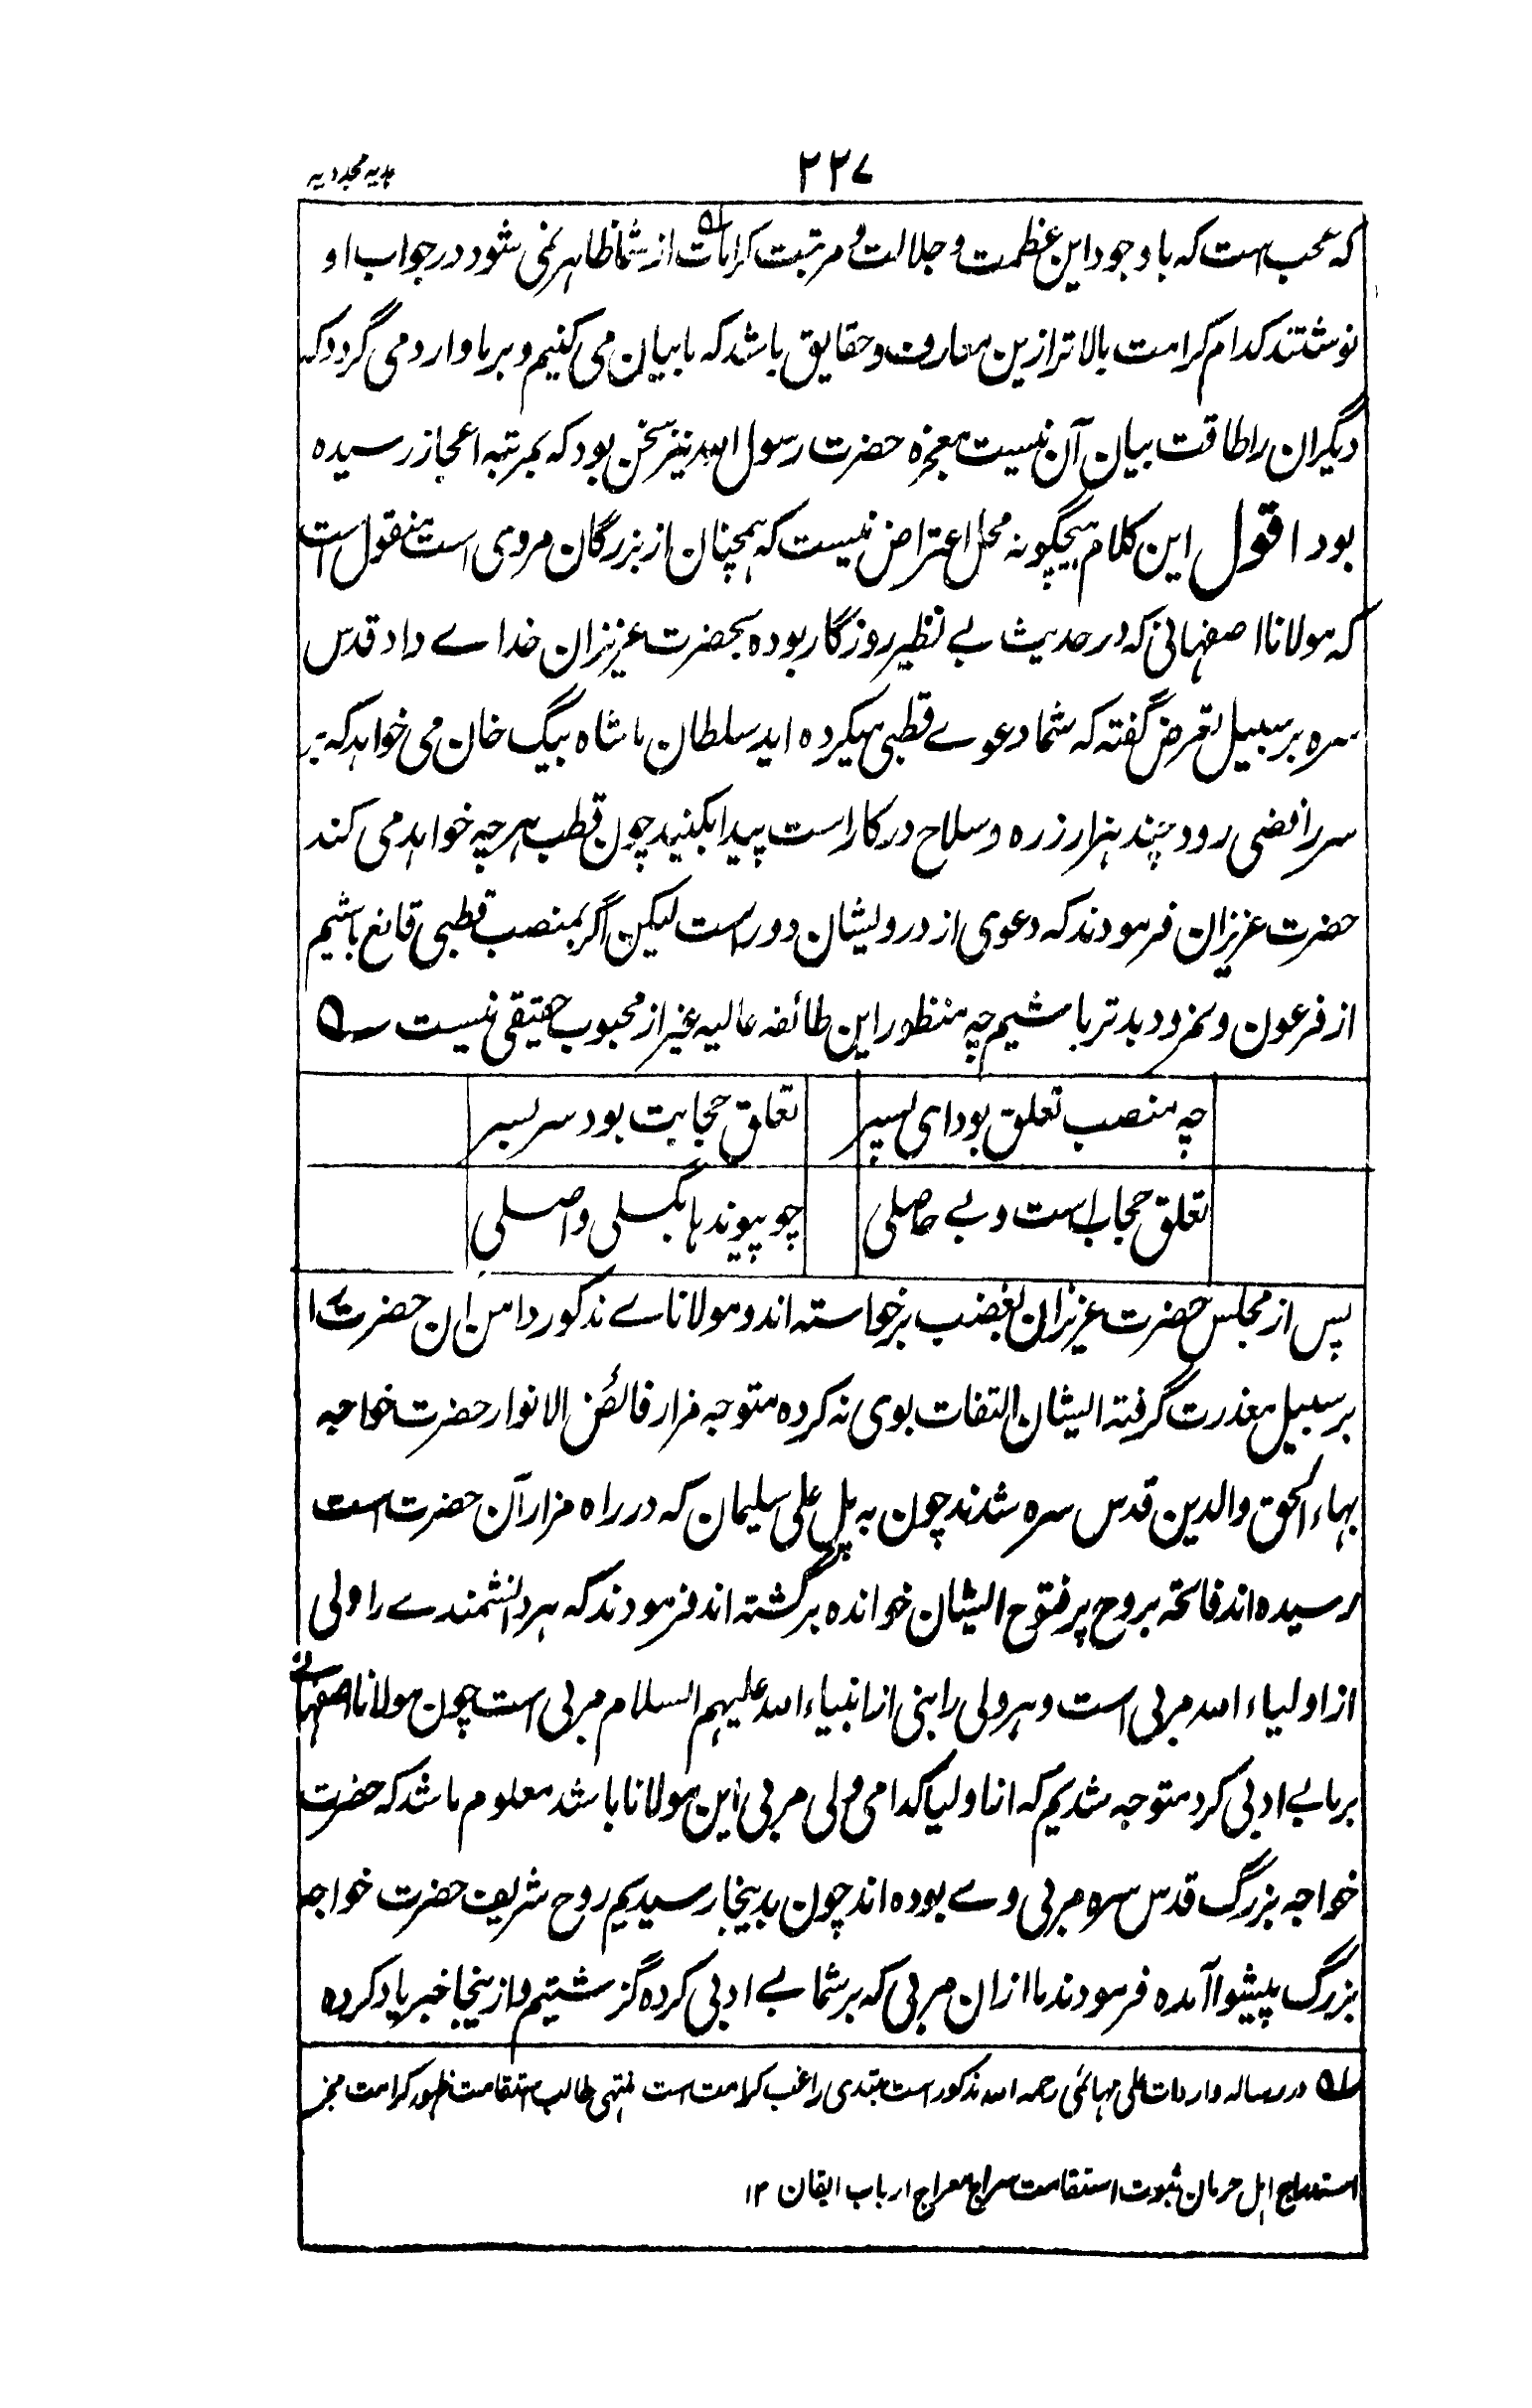 ۲۲۷
ہدیہ مجددیہ
کہ عجب است کہ باوجود این عظمت و جلالت و مرتبت کرامات از شما ظاہر نمی شود در جواب او
نوشتند کدام کرامت بالاتر ازین معارف و حقایق باشد کہ ما بیان می کنیم و بر ما وارد می گردد کہ
دیگران را طاقت بیان آن نیست معجزہ حضرت رسول اللہ نیز سخن بود کہ بمرتبہ اعجاز رسیدہ
بود اقول این کلام ہیچگونہ محل اعتراض نیست کہ ہمچنان از بزرگان مروی است منقول است
کہ مولانا اصفہانی کہ در حدیث بے نظیر روزگار بودہ بحضرت عزیزان خداے داد قدس
سرہ بر سبیل تعرض گفتہ کہ شما دعوے قطبی میکردہ اید سلطان ما شاہ بیگ خان می خواہد کہ بر
سر رافضی رود چند ہزار زرہ و سلاح درکار است پیدا بکنید چون قطب ہر چہ خواہد می کند
حضرت عزیزان فرمودند کہ دعوی از درویشان دور است لیکن اگر بمنصب قطبی قانع باشیم
از فرعون و نمرود بدتر باشیم چہ منظور این طائفہ عالیہ غیر از محبوب حقیقی نیست ؎
چہ منصب تعلق بود ای پسر تعلق حجابت بود سر بسر
تعلق حجاب است و بے حاصلی چو پیوندہا بگسلی واصلی
پس از مجلس حضرت عزیزان بغضب برخواستہ اند و مولاناے مذکور دامن آن حضرت را
بر سبیل معذرت گرفتہ ایشان التفات بوی نہ کردہ متوجہ مزار فائض الانوار حضرت خواجہ
بہاء الحق والدین قدس سرہ شدند چون بہ پل علی سلیمان کہ در راہ مزار آن حضرت است
رسیدہ اند فاتحہ بروح پر فتوح ایشان خواندہ برگشتہ اند فرمودند کہ ہر دانشمندے را ولی
از اولیاء اللہ مربی است و ہر ولی را نبی از انبیاء اللہ علیہم السلام مربی است چون مولانا اصفہانی
بر ما بے ادبی کرد متوجہ شدیم کہ از اولیا کدامی ولی مربی این مولانا باشد معلوم ما شد کہ حضرت
خواجہ بزرگ قدس سرہ مربی وے بودہ اند چون بدینجا رسیدیم روح شریف حضرت خواجہ
بزرگ پیشوا آمدہ فرمودند ما ازان مربی کہ بر شما بے ادبی کردہ گزشتیم و از ینجا خبر یاد کردہ
لہ در رسالہ واردات علی مہائمی رحمہ اللہ مذکور است مبتدی راغب کرامت است منتہی طالب استقامت ظہور کرامت مخبر
استدراج اہل حرمان ثبوت استقامت سراج معراج ارباب ایقان ۱۲